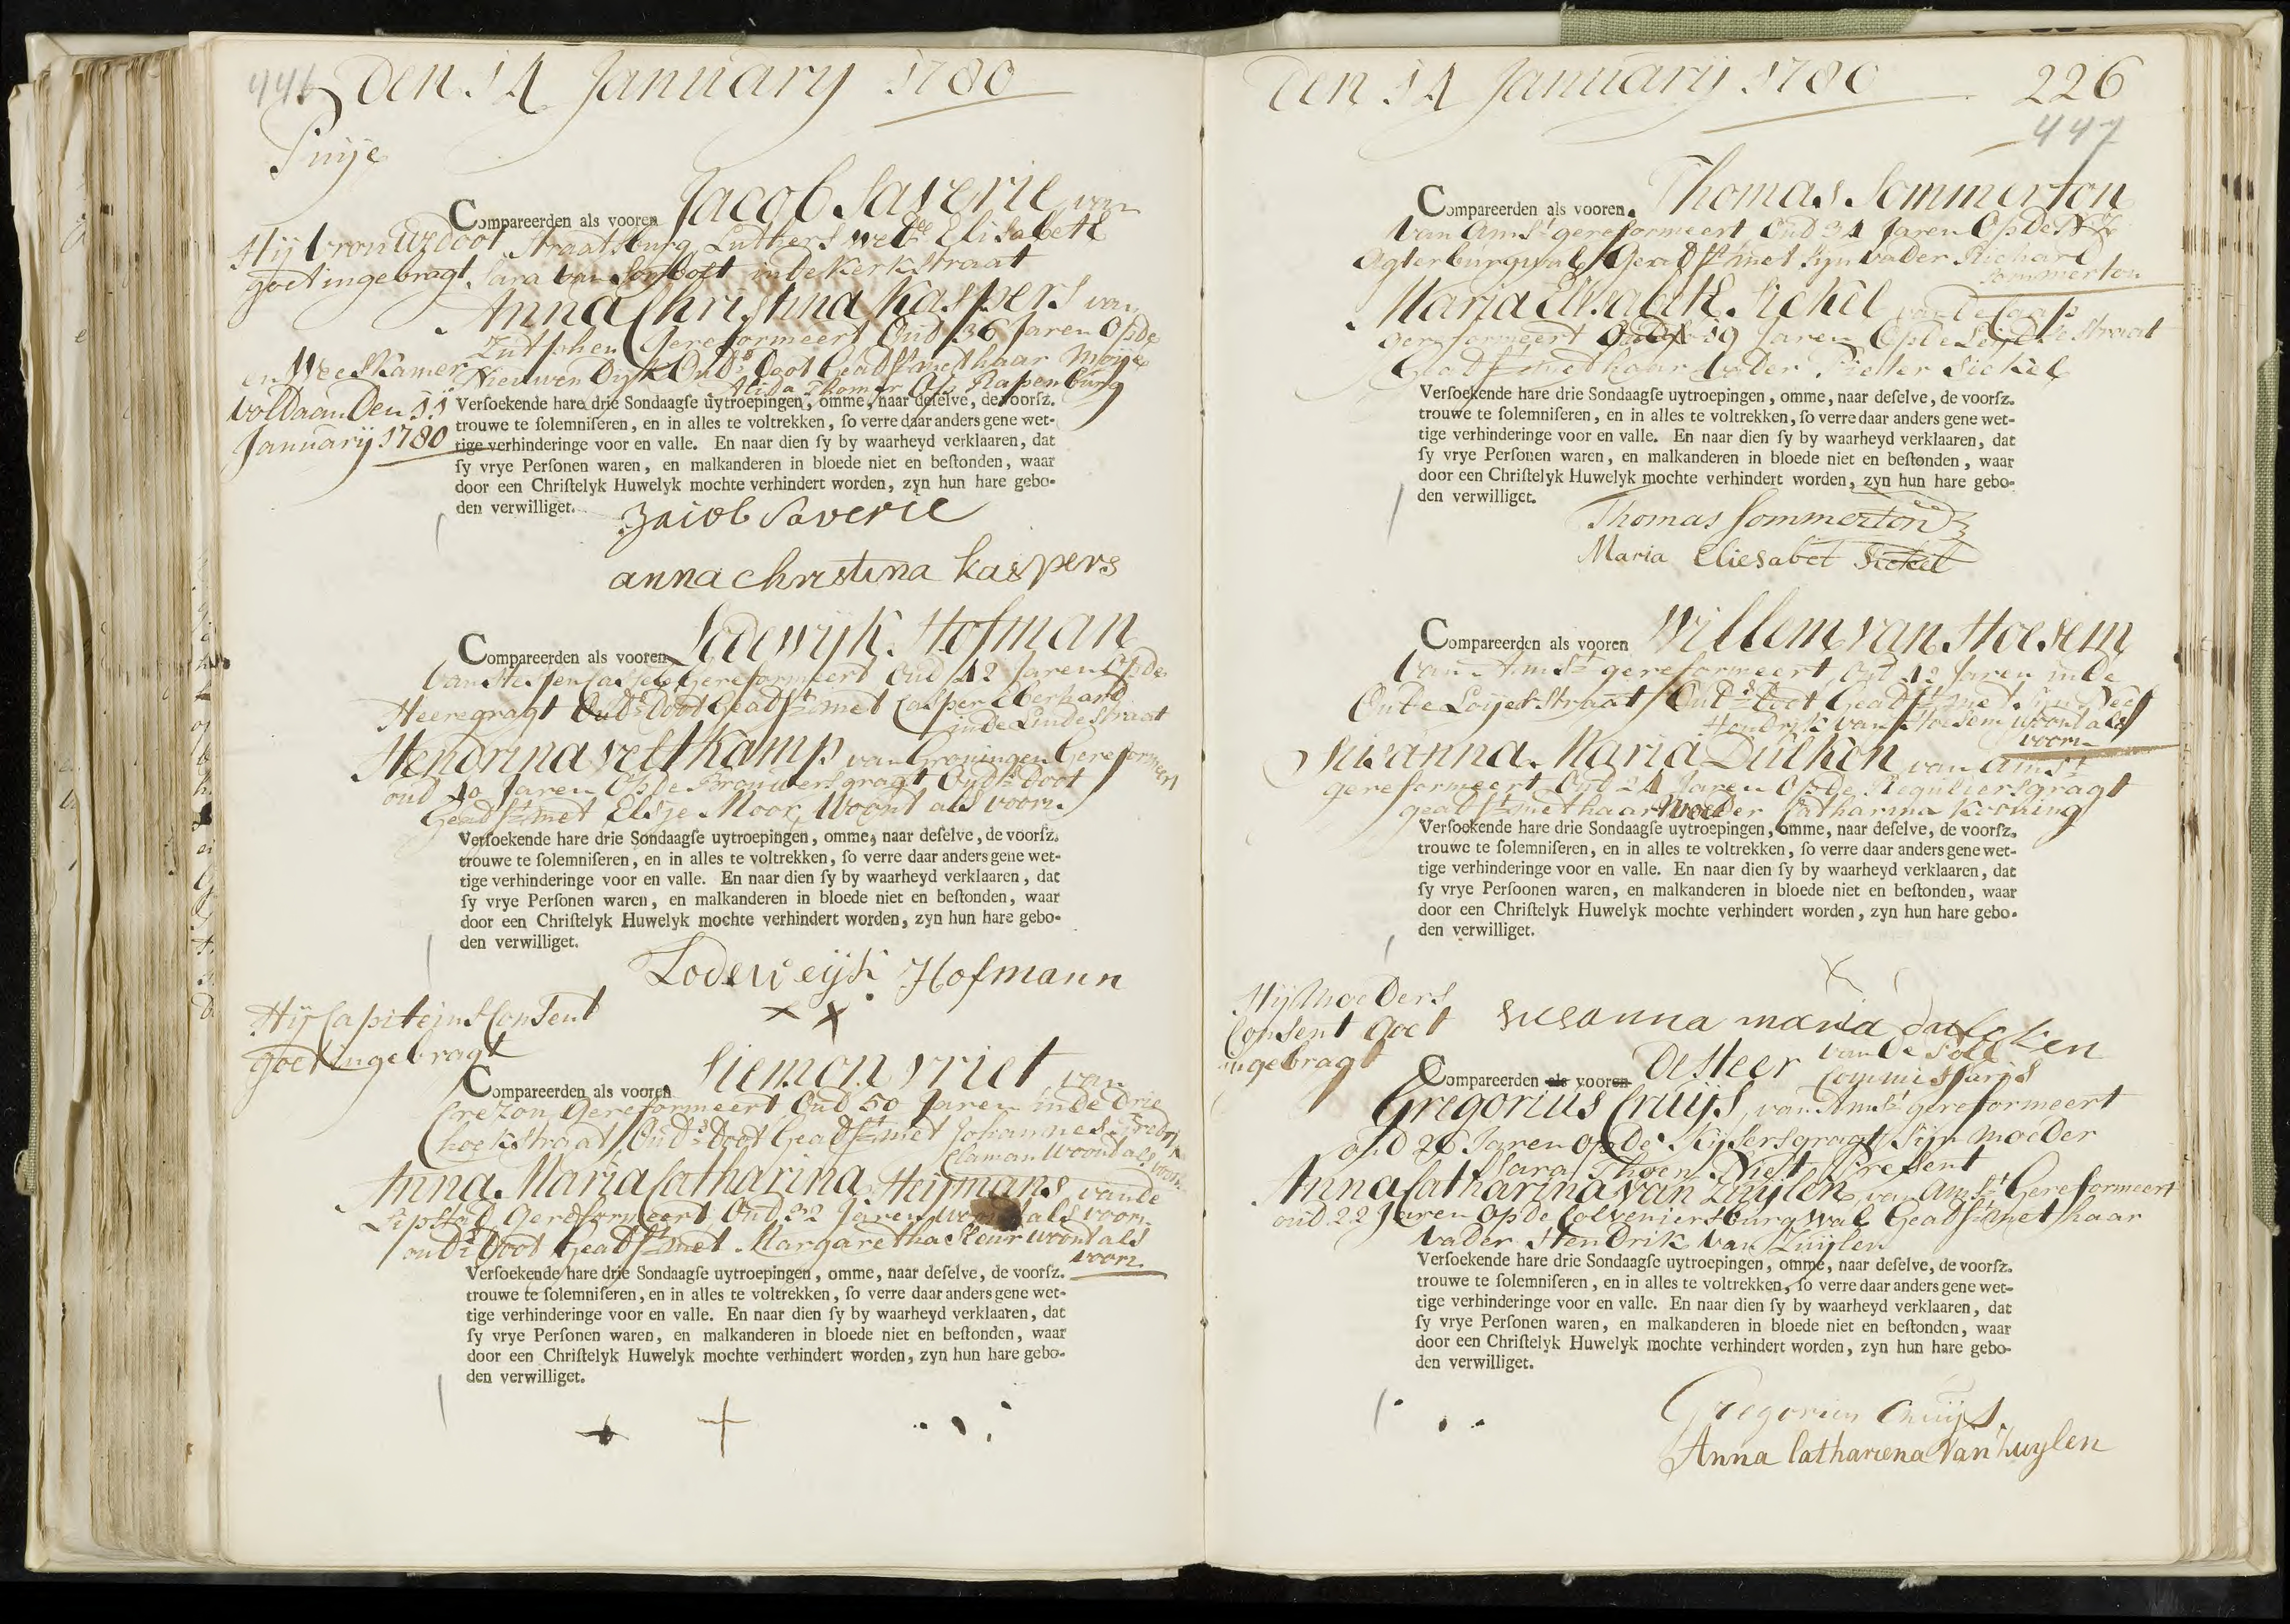 446 Den 14 January 1780
Puije
Compareerden als vooren Jacob Saverie van
Straatsburg Luthers wedr Elisabeth
Sara van in de Kerkstraat
Anna Christina Kaspers van
Zutphen Gereformeert Oud 36 Jaren Op de
Nieuwen Dijk Ouds doot Geadst met haar Moije
Alida Thomas Op Rapenburg
Hij vrouw doot
goet ingebragt
en WeesKamer
voldaan Den 11
January 1780
Verſoekende hare drie Sondaagſe uytroepingen, omme, naar deſelve, de voorſz.
trouwe te ſolemniſeren, en in alles te voltrekken, ſo verre daar anders gene wet-
tige verhinderinge voor en valle. En naar dien ſy by waarheyd verklaaren, dat
ſy vrye Perſonen waren, en malkanderen in bloede niet en beſtonden, waar
door een Chriſtelyk Huwelyk mochte verhindert worden, zyn hun hare gebo-
den verwilliget.
Jacob Saverie
anna christina kaspers
Compareerden als vooren Lodewijk Hofman
van Hessen Cassel Gereformeert Oud 42 Jaren Op de
Heeregragt Ouds doot Geadst met Casper Eberhard
in de Lindestraat
Hendrina Veltkamp van Groningen Gereformeert
oud 40 Jaren Op de Brouwersgragt Ouds doot
Geadst met Elsje Moor Woont als voorn
Verſoekende hare drie Sondaagſe uytroepingen, omme, naar deſelve, de voorſz.
trouwe te ſolemniſeren, en in alles te voltrekken, ſo verre daar anders gene wet-
tige verhinderinge voor en valle. En naar dien ſy by waarheyd verklaaren, dat
ſy vrye Perſonen waren, en malkanderen in bloede niet en beſtonden, waar
door een Chriſtelyk Huwelyk mochte verhindert worden, zyn hun hare gebo-
den verwilliget.
Lodeweijk Hofmann
x x
Hij Capiteins Consent
goet ingebragt
Compareerden als vooren Siemon Vriet van
Gereformeert Oud 50 Jaren in de Drie
hoekstraat Ouds doot Geadst met Johannes Fredrik
Claman Woont als voorn
Anna Maria Catharina Heijmans van de
Lipstad Gereformeert Oud 32 Jaren woont als voorn
ouds doot Geadst met Margaretha Sleur woont als
voorn
Verſoekende hare drie Sondaagſe uytroepingen, omme, naar deſelve, de voorſz.
trouwe te ſolemniſeren, en in alles te voltrekken, ſo verre daar anders gene wet-
tige verhinderinge voor en valle. En naar dien ſy by waarheyd verklaaren, dat
ſy vrye Perſonen waren, en malkanderen in bloede niet en beſtonden, waar
door een Chriſtelyk Huwelyk mochte verhindert worden, zyn hun hare gebo-
den verwilliget.
+ +
Den 14 Januarij 1780 226
447
Compareerden als vooren Thomas Sommerton
van Amst gereformeert Oud 34 Jaren Op de NZ
Agterburgwal Geadst met sijn vader Richard
Sommerton
Maria Elisabeth Sickel van de Caap
gereformeert Oud 19 Jaren Op de Leydsestraat
Geadst met haar vader Pieter Sickel
Verſoekende hare drie Sondaagſe uytroepingen, omme, naar deſelve, de voorſz.
trouwe te ſolemniſeren, en in alles te voltrekken, ſo verre daar anders gene wet-
tige verhinderinge voor en valle. En naar dien ſy by waarheyd verklaaren, dat
ſy vrye Perſonen waren, en malkanderen in bloede niet en beſtonden, waar
door een Chriſtelyk Huwelyk mochte verhindert worden, zyn hun hare gebo-
den verwilliget.
Thomas Sommerton
Maria Eliesabet Sickel
Compareerden als vooren Willem van Hoesem
van Amst gereformeert oud 42 Jaren in de
Oude Loijerstraat Ouds doot Geadst met sijn Neef
Hendrik van Hoesem woont als
voorn
Susanna Maria Dulken van Amst
gereformeert Oud 24 Jaren Op de Reguliersgragt
geadst met haar Moeder Catharina Kroning
Verſoekende hare drie Sondaagſe uytroepingen, omme, naar deſelve, de voorſz.
trouwe te ſolemniſeren, en in alles te voltrekken, ſo verre daar anders gene wet-
tige verhinderinge voor en valle. En naar dien ſy by waarheyd verklaaren, dat
ſy vrye Perſoonen waren, en malkanderen in bloede niet en beſtonden, waar
door een Chriſtelyk Huwelyk mochte verhindert worden, zyn hun hare gebo-
den verwilliget.
x
susanna maria
Hij Moeders
Consent goet
ingebragt
Compareerden als vooren De Heer van de Poll
Commissaris
Gregorius Cruijs van Amst gereformeert
oud 26 Jaren op de Kijsersgragt Sijn Moeder
Sara Thoen Niet Present
Anna Catharina van Zuijlen van Amst Gereformeert
oud 22 Jaren Op de Colveniersburgwal Geadst met haar
vader Hendrik van Zuijlen
Verſoekende hare drie Sondaagſe uytroepingen, omme, naar deſelve, de voorſz.
trouwe te ſolemniſeren, en in alles te voltrekken, ſo verre daar anders gene wet-
tige verhinderinge voor en valle. En naar dien ſy by waarheyd verklaaren, dat
ſy vrye Perſonen waren, en malkanderen in bloede niet en beſtonden, waar
door een Chriſtelyk Huwelyk mochte verhindert worden, zyn hun hare gebo-
den verwilliget.
Gregorius Cruijs.
Anna Catharena Van Zuylen